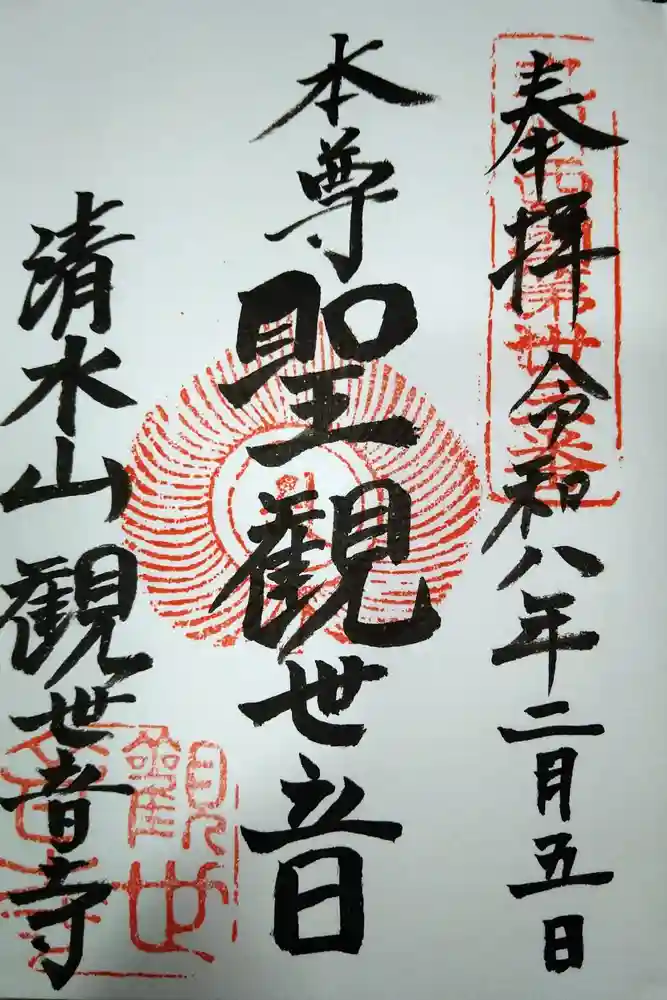 奉拝 令和八年二月五日
本尊 聖観世音
清水山 観世音寺
観世